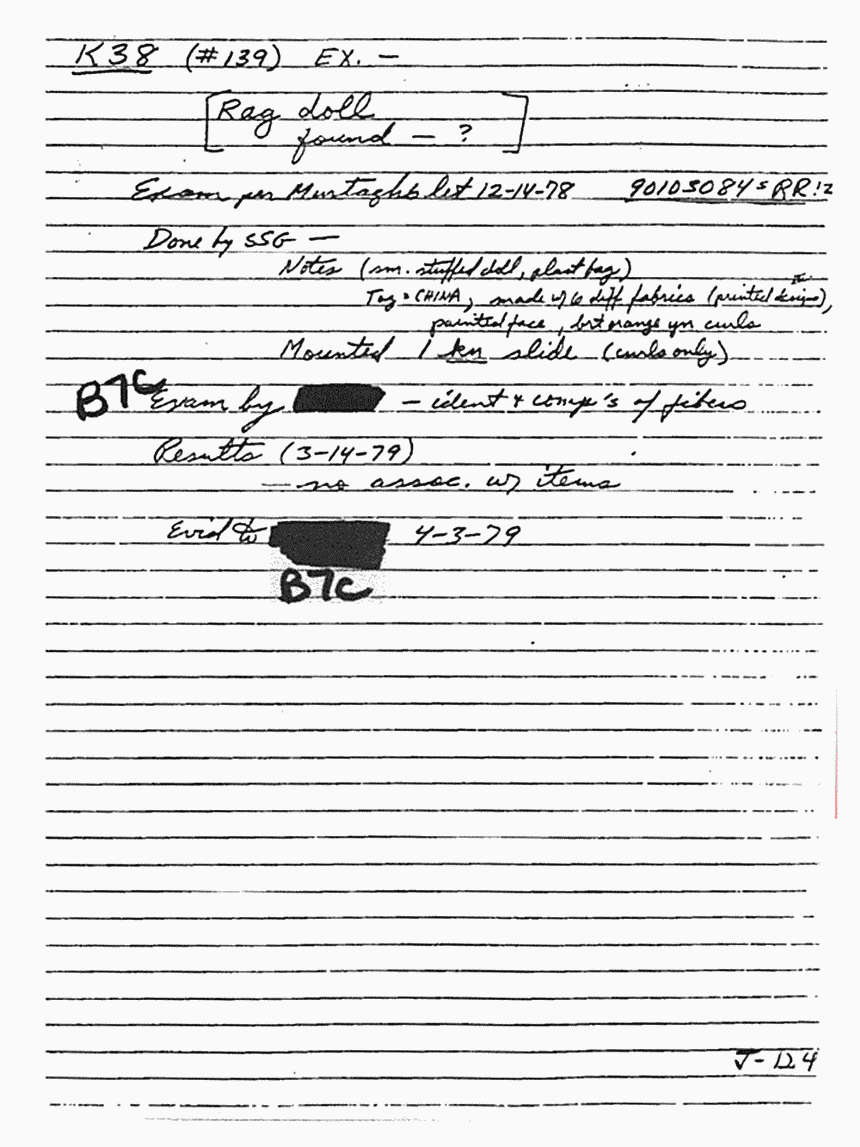 K38 (#139) EX. —
[Rag doll
found — ?]
Exam per Murtagh's let 12-14-78 90103084 S RR
Done by SSG —
Notes (sm. stuffed doll, plast bag)
Tag = CHINA, made w/ 6 diff fabrics (printed designs),
painted face, brt orange yn curls
Mounted 1 kn slide (curls only)
B7C Exam by — ident & comp's of fibers
Results (3-14-79)
— no assoc. w/ items
Evid to 4-3-79
B7C
J-124